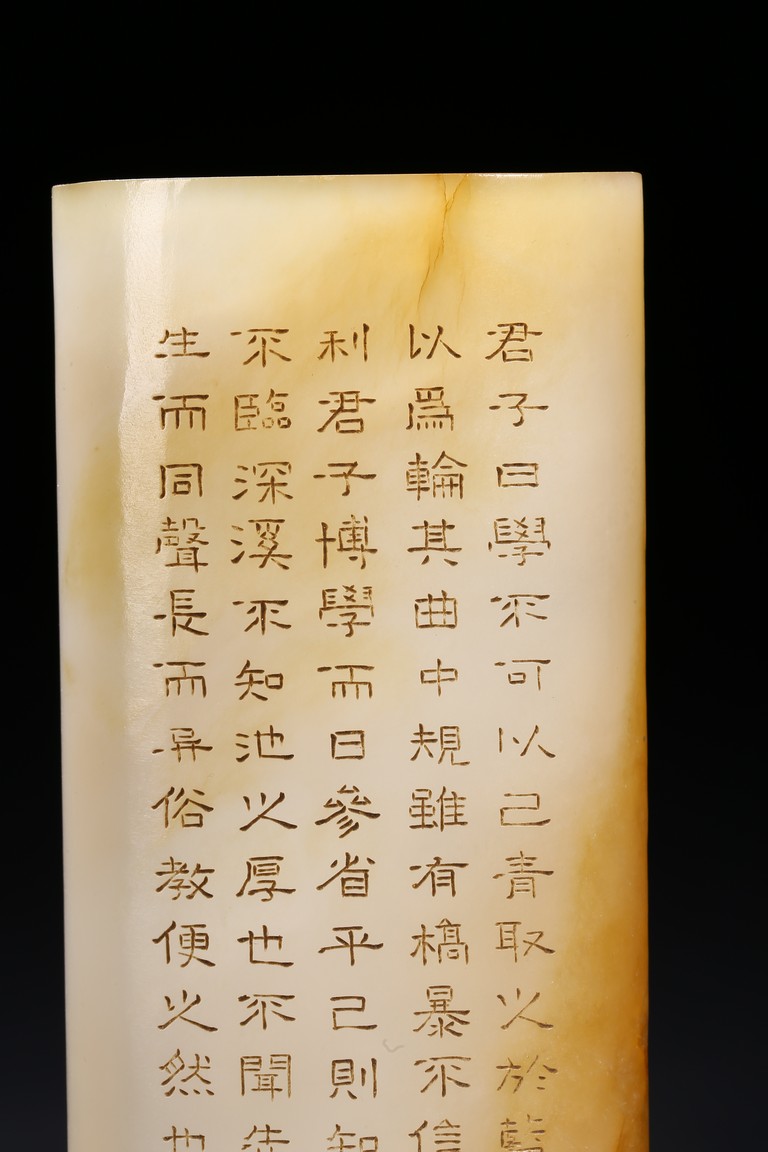 君子曰學不可以己青取之於藍
以爲輪其曲中規雖有槁暴不信
利君子博學而日參省乎己則知
不臨深溪不知池之厚也不聞先
生而同聲長而异俗教便之然也